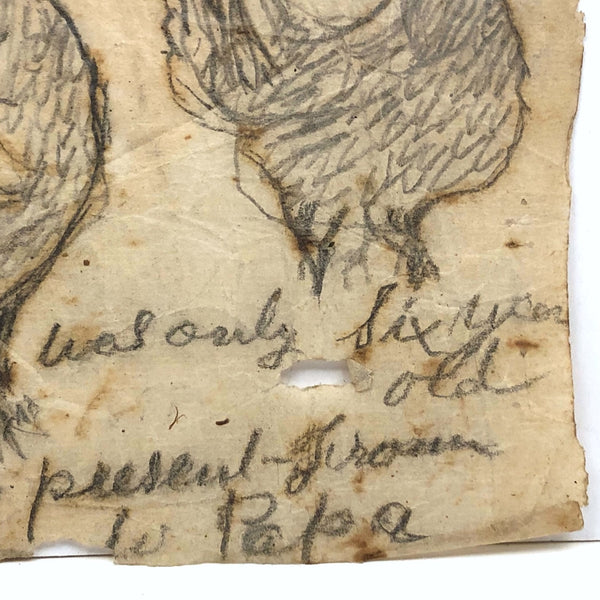 was only six year
old
present from
to Papa